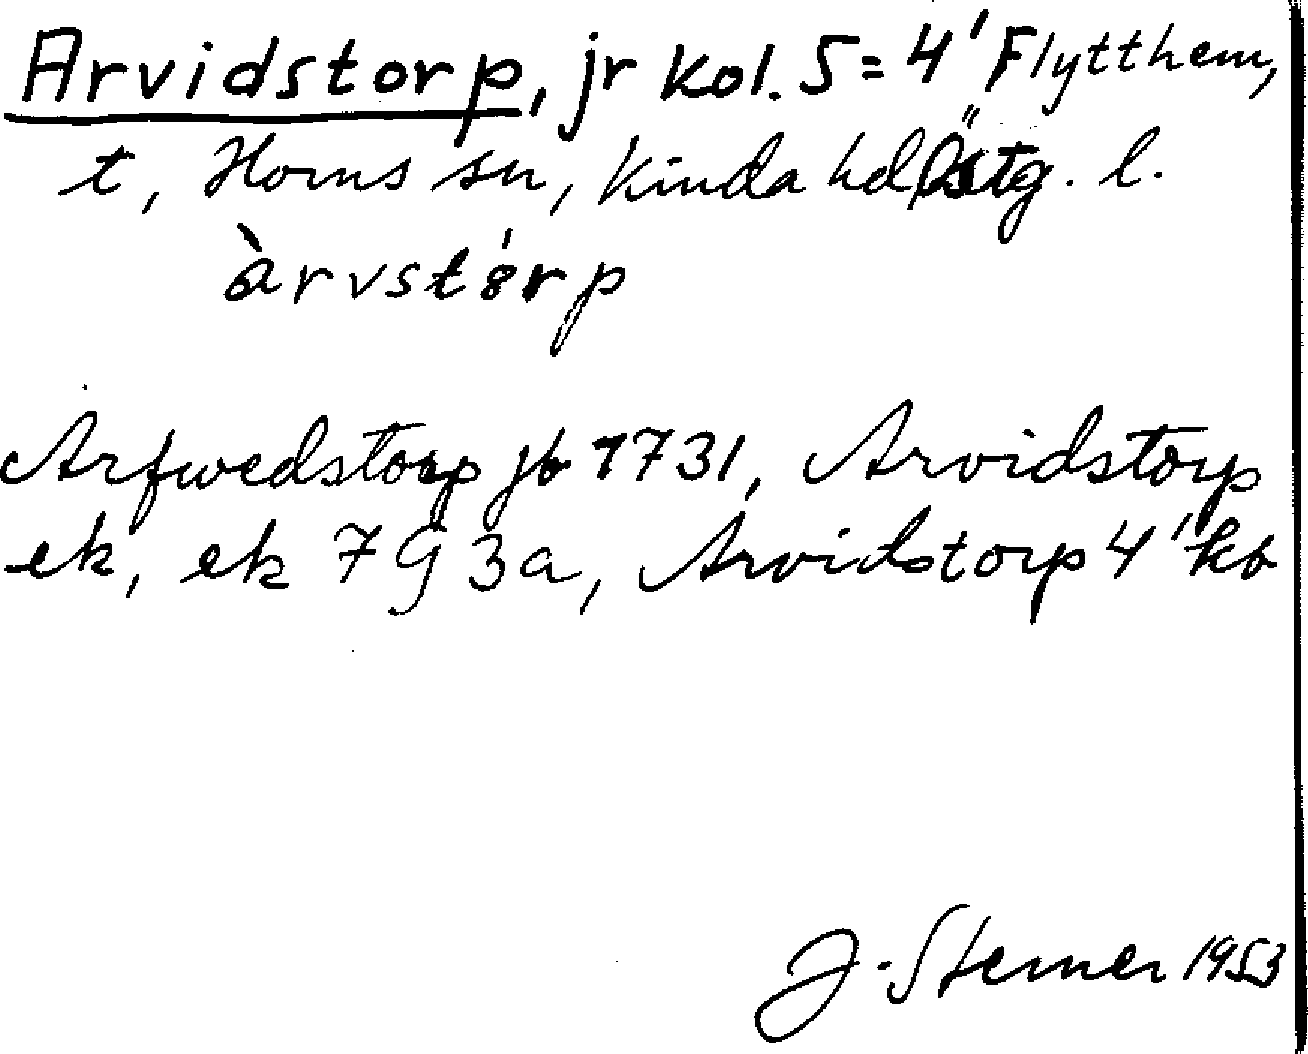 Arvidstorp, jr kol. S = 4' Flytthem,
t, Horns sn, Kinda hd Östg. l.
àrvstórp
Arfwedstorp jb 1731, Arvidstorp
ek, ek 7 G 3a, Arvidstorp 4' kb
J. Sterner 1953